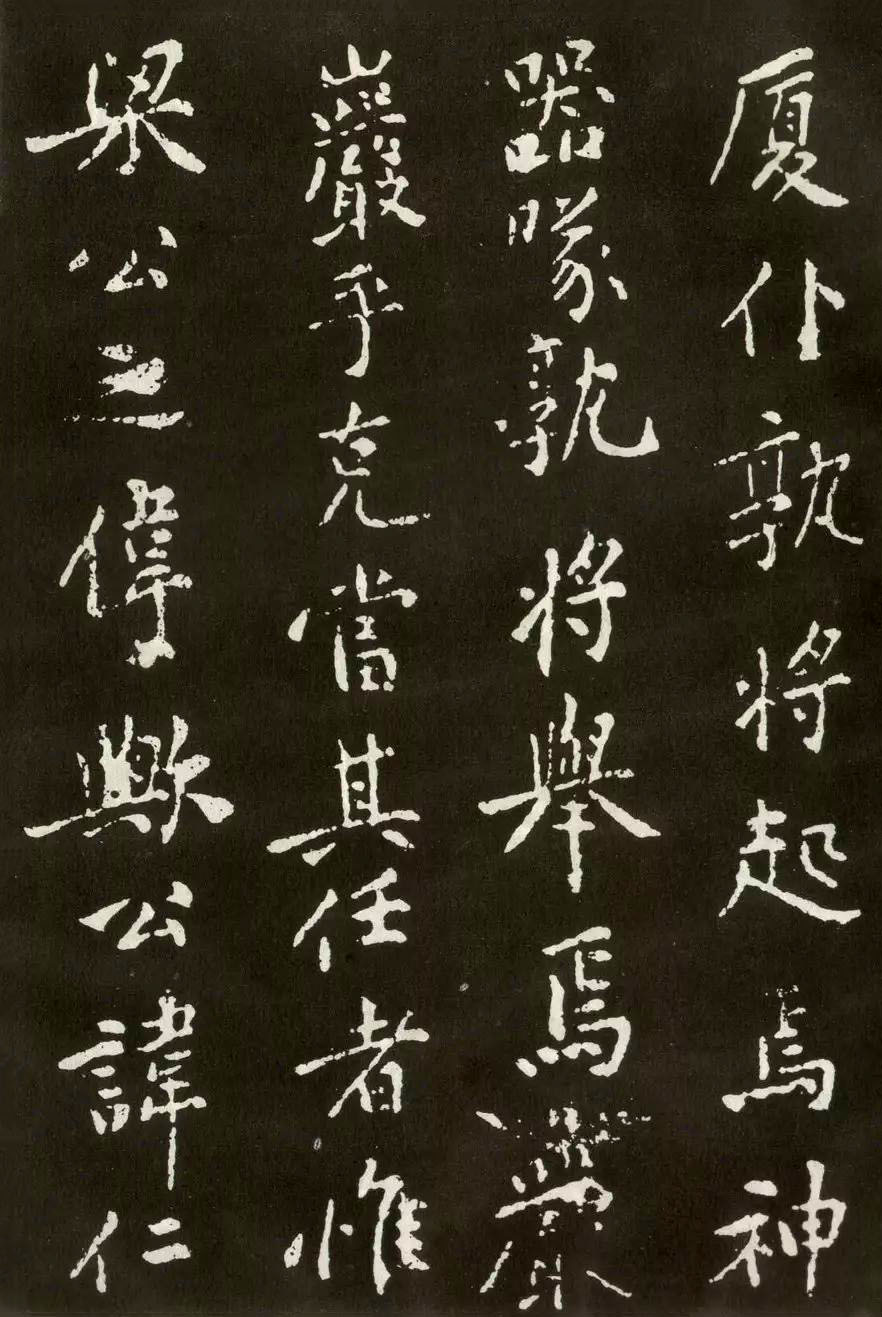 厦仆孰将起焉神
器隊孰将舉焉巖
巖乎克當其任者惟
梁公之偉歟公諱仁